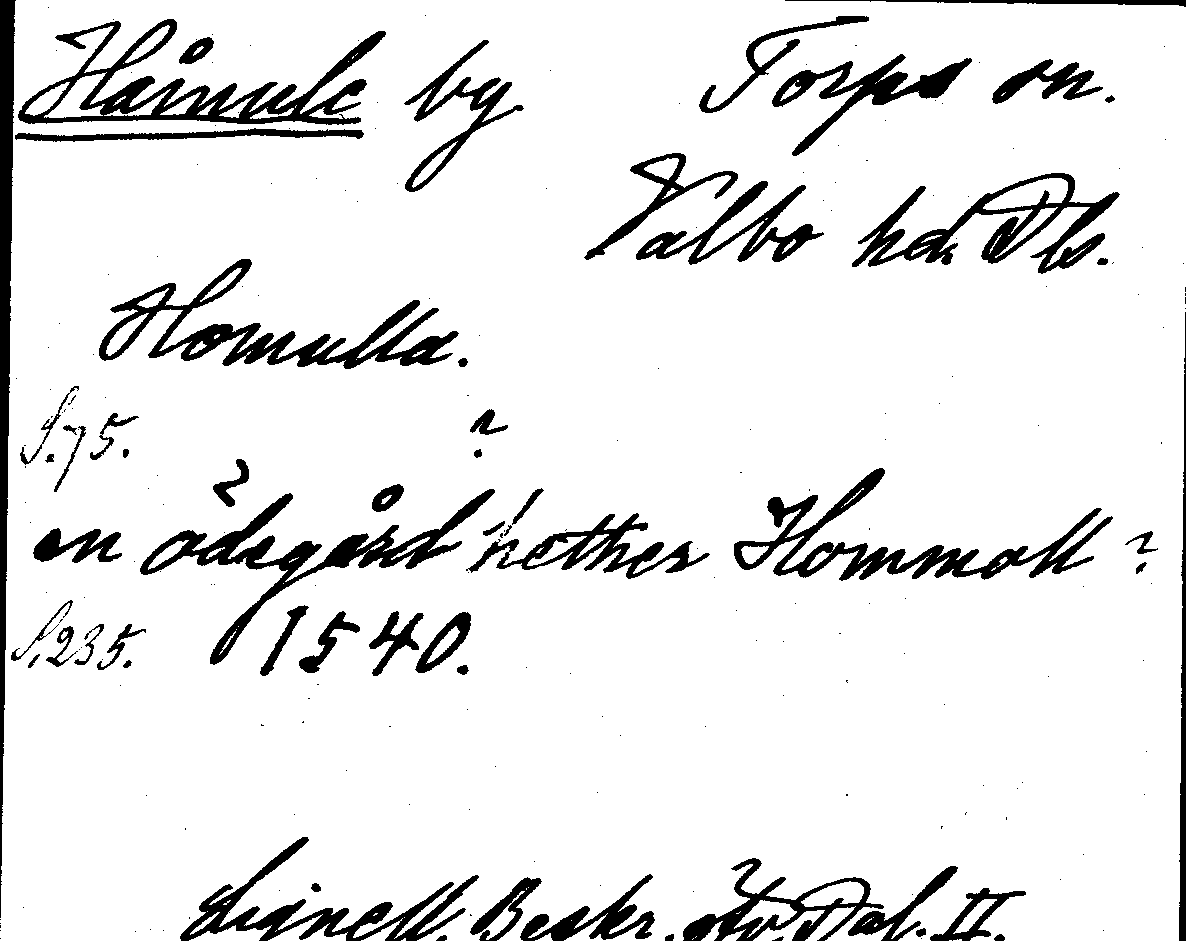 Håmule by Torps sn.
Valbo hd. Dls.
Homulla.
S. 75. ?
en ödegård hether Hommoll ?
S. 235. 1540.
Lignell. Beskr. öfv. Dal. II.